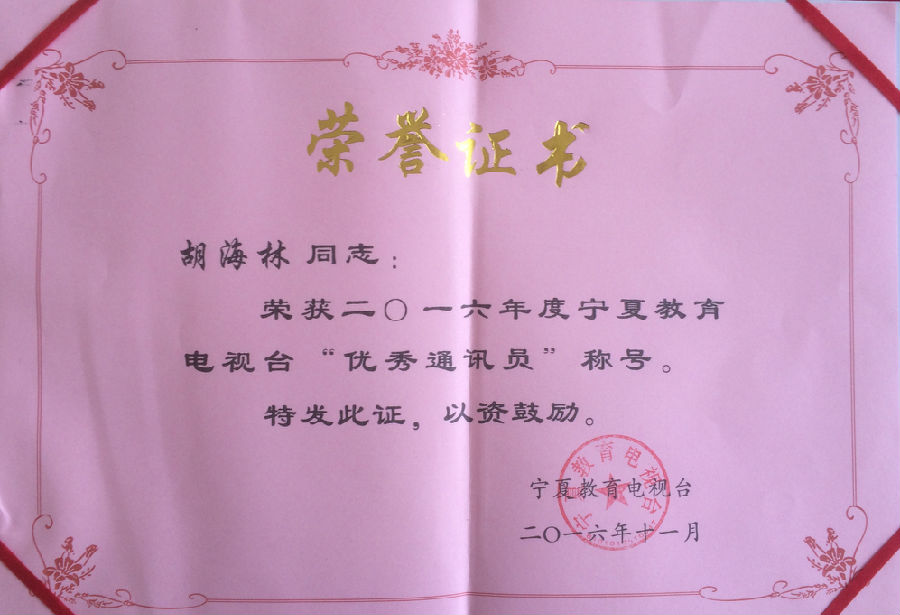 荣誉证书
胡海林 同志：
荣获二〇一六年度宁夏教育
电视台“优秀通讯员”称号。
特发此证，以资鼓励。
宁夏教育电视台
宁夏教育电视台
二〇一六年十一月